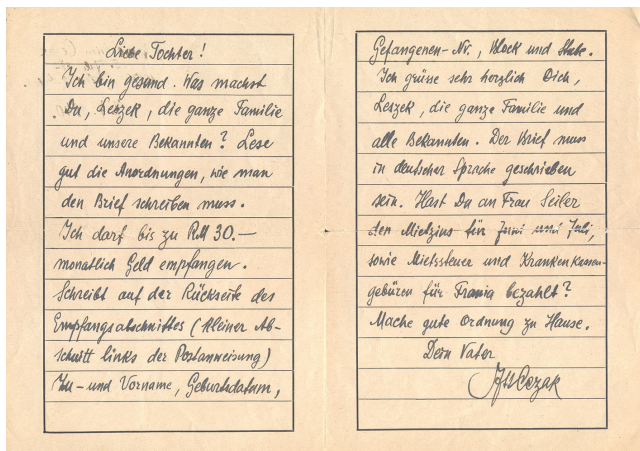 Liebe Tochter!
Ich bin gesund. Was machst
Du, Leszek, die ganze Familie
und unsere Bekannten? Lese
gut die Anordnungen, wie man
den Brief schreiben muss.
Ich darf bis zu RM 30.—
monatlich Geld empfangen.
Schreibt auf der Rückseite des
Empfangsabschnittes (kleiner Ab-
schnitt links der Postanweisung)
Zu- und Vorname, Geburtsdatum,
Gefangenen-Nr., Block und Stube.
Ich grüsse sehr herzlich Dich,
Leszek, die ganze Familie und
alle Bekannten. Der Brief muss
in deutscher Sprache geschrieben
sein. Hast Du an Frau Seiler
den Mietzins für Juni und Juli,
sowie Mietssteuer und Krankenkassen-
gebüren für Frania bezahlt?
Mache gute Ordnung zu Hause.
Dein Vater